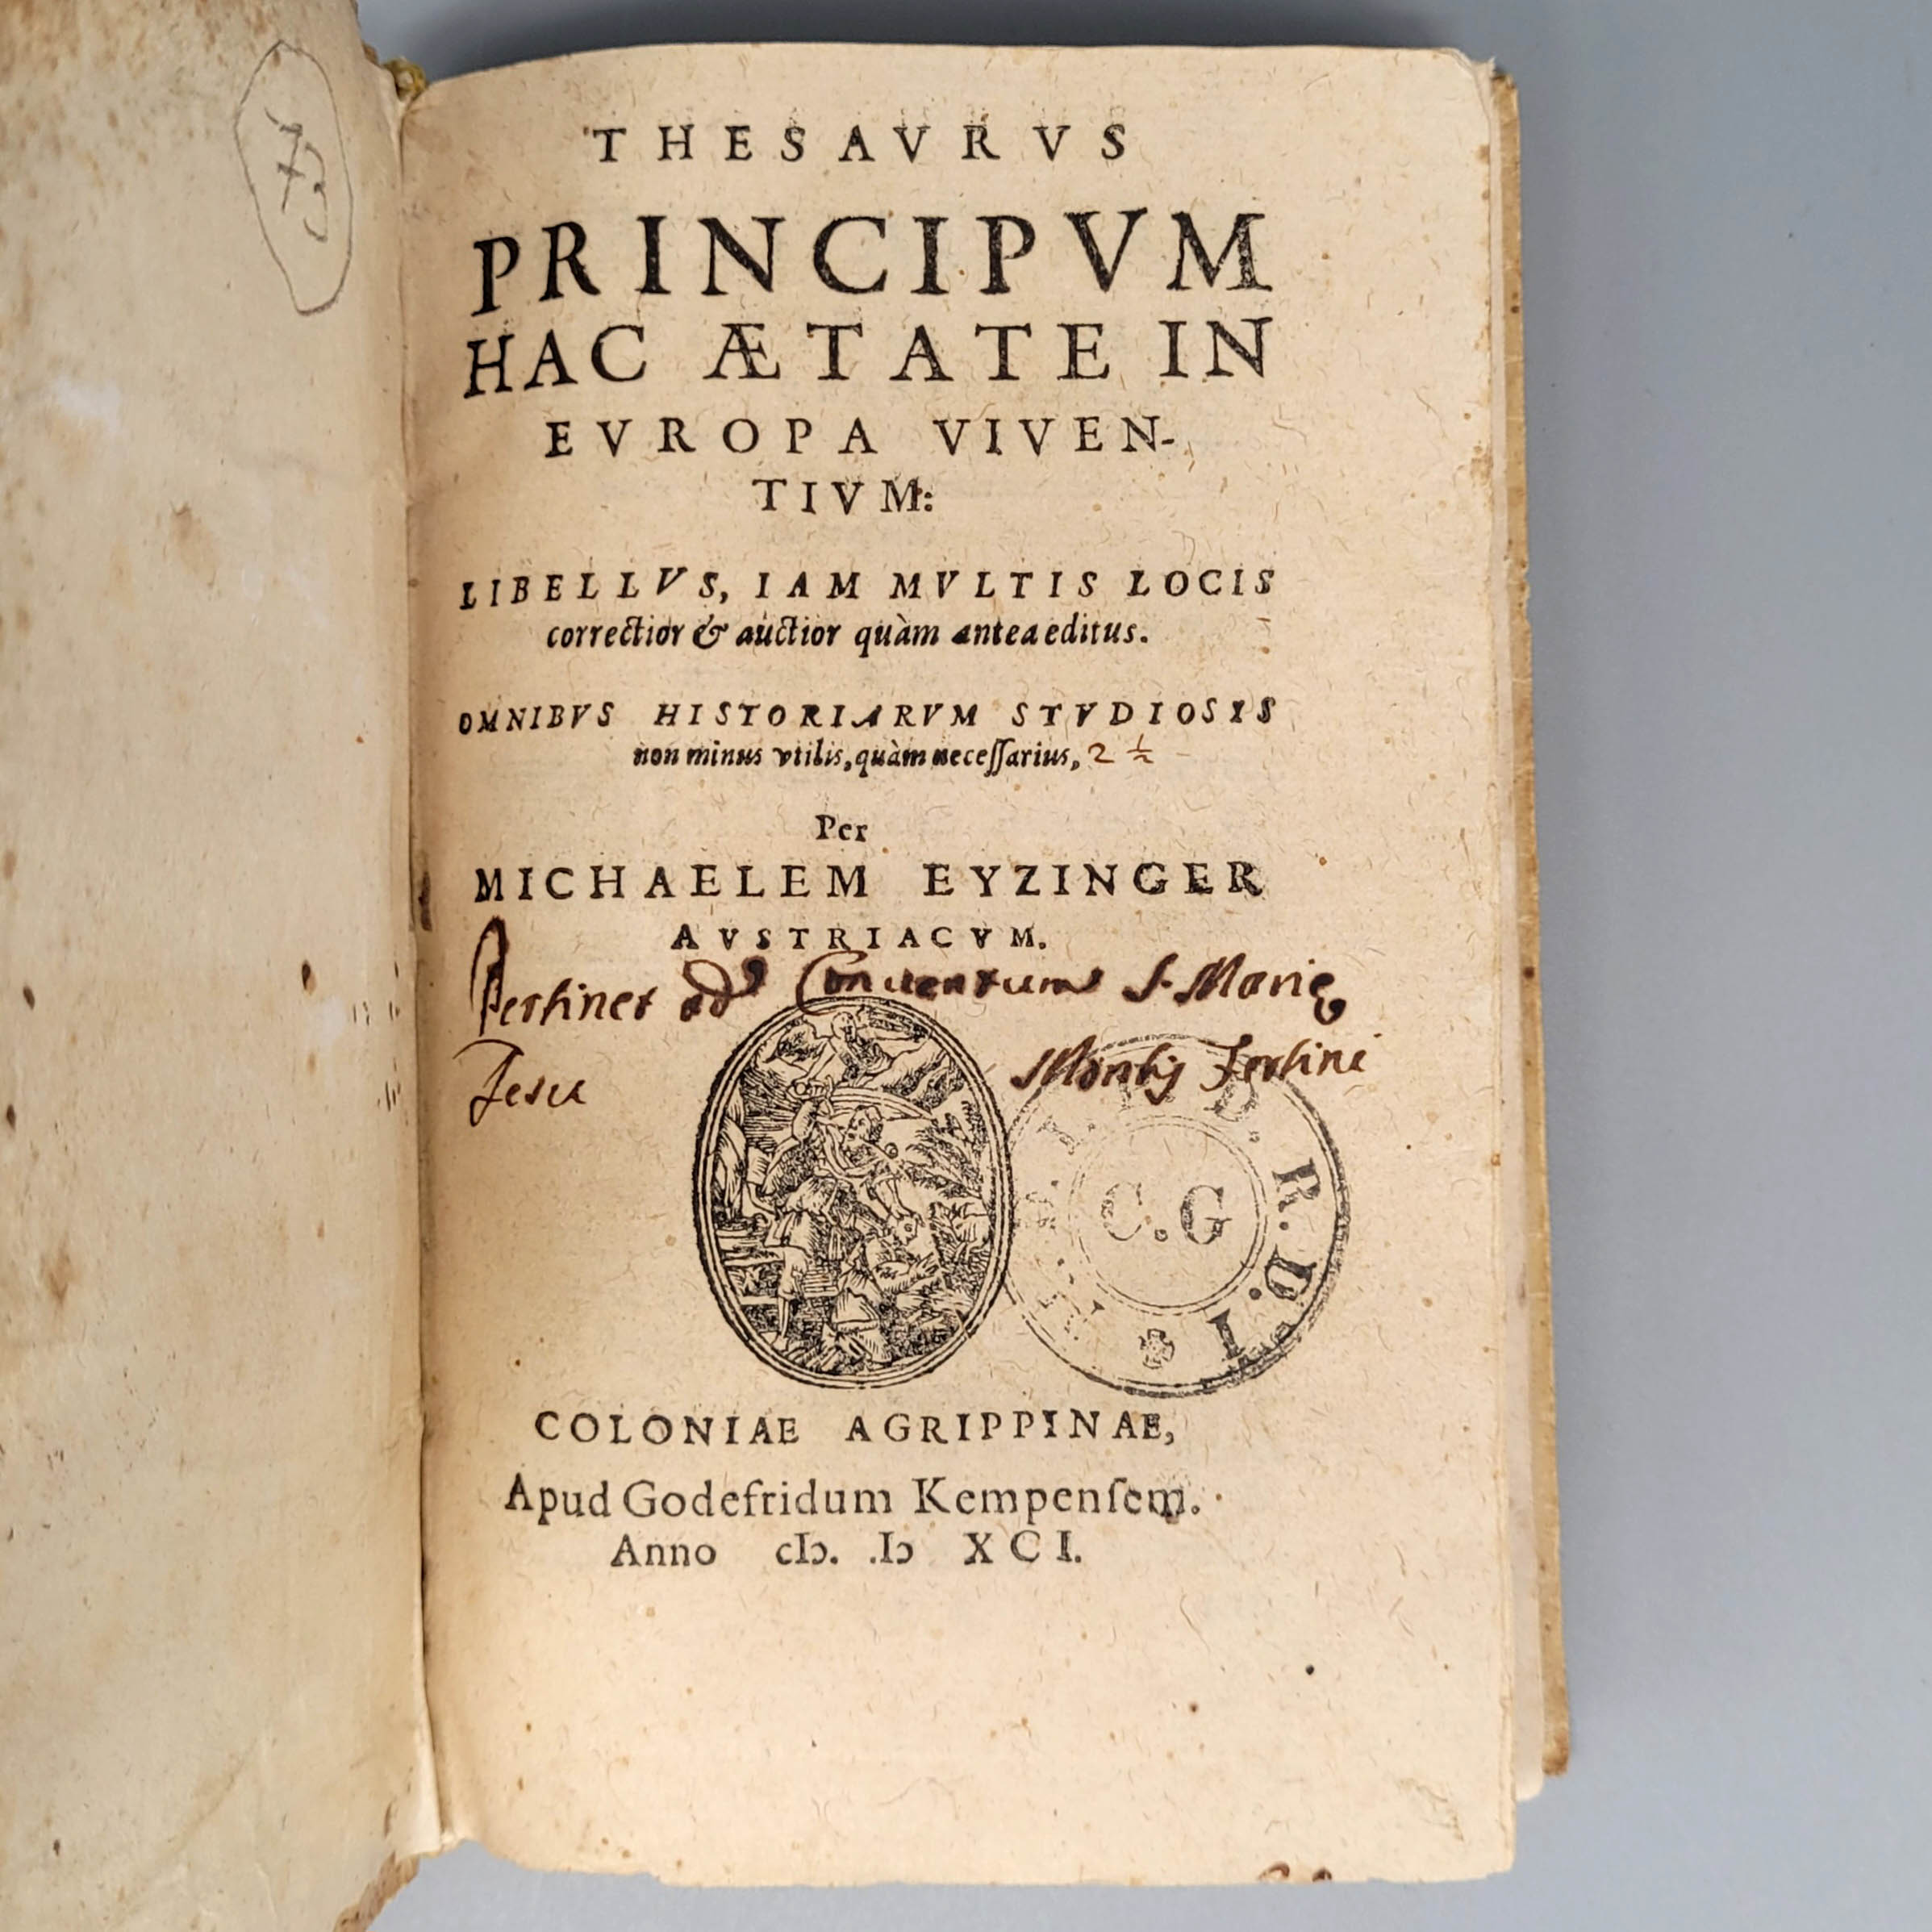 THESAVRVS
PRINCIPVM
HAC ÆTATE IN
EVROPA VIVEN-
TIVM:
LIBELLVS, IAM MVLTIS LOCIS
correctior & auctior quàm antea editus.
OMNIBVS HISTORIARVM STVDIOSIS
non minus vtilis, quàm neceſſarius, 2 ½
Per
MICHAELEM EYZINGER
AVSTRIACVM.
Pertinet ad Conuentum S. Marię
Jesu
COLONIAE AGRIPPINAE,
Apud Godefridum Kempenſem.
Anno cIↄ. .Iↄ XCI.
C.G
D. R. D. I